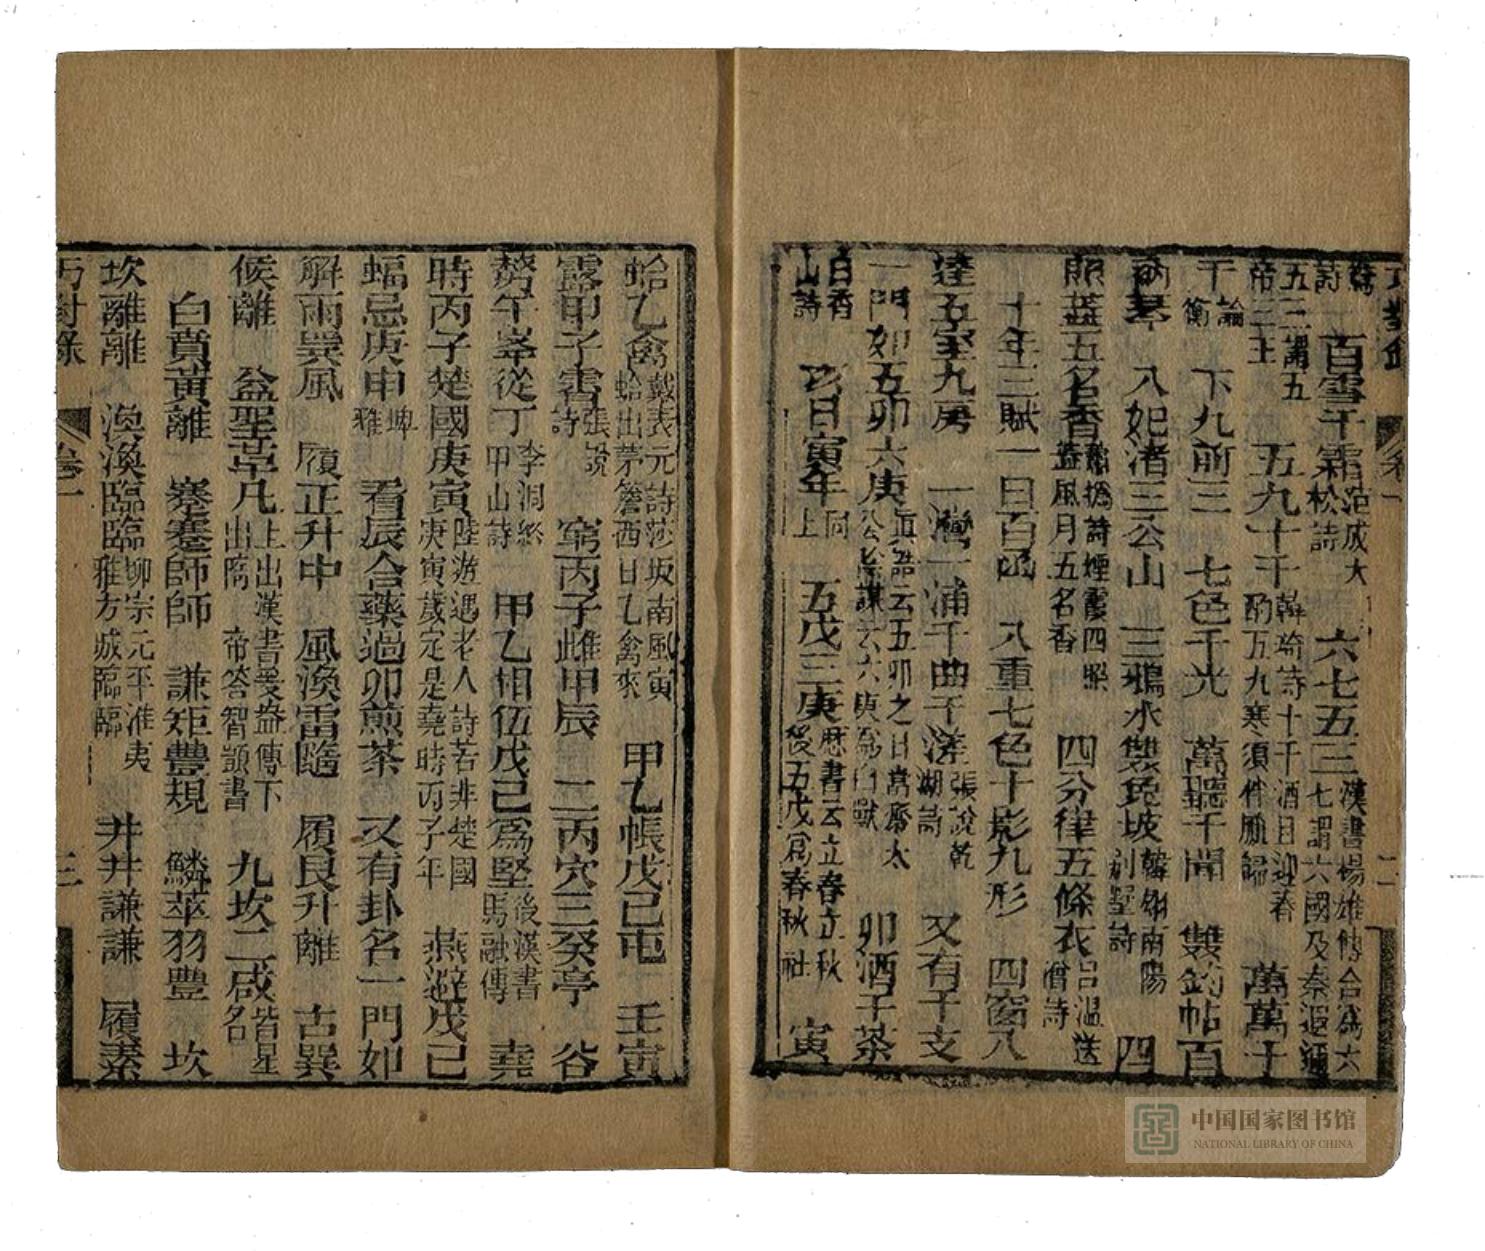 巧對錄 卷一 二
詩 百雪千霜 范成大松詩 六七五三 漢書楊雄傳合為六七謂六國及秦遐邇
五三謂五帝三王 五九十千 韓琦詩十千酒日迎春酌万九寒須伴臘歸 萬萬千
千 論衡 下九前三 七色千光 萬聽千聞 雙鈎帖百
衲琴 八妃渚三公山 三鴉水雙兔坡 韓翃南陽別墅詩 四
照蓋五名香 詩煙霞四照蓋風月五名香 四分律五條衣 呂溫送僧詩
十年三賦一日百函 八重七色十影九形 四窗八
達五室九房 一灣一浦千曲千漥 張說乾湖詩 又有干支
一門如五卯六庚 真誥云五卯之日當齋太公陰謀云六庚為白獸 卯酒子茶
白香山詩 亥日寅年 同上 五戊三庚 歷書云立春立秋後五戊爲春秋社 寅
蛤乙禽 戴表元詩莎坂南風寅蛤出茅簷西日乙禽來 甲乙帳戊己屯 壬寅
露甲子書 張說詩 窮丙子雌甲辰 二丙穴三癸亭 谷
午峯從丁 李洞終甲山詩 甲乙相伍戊己爲堅 後漢書馬融傳 堯
時丙子楚國庚寅 陸游遇老人詩若非楚國庚寅歲定是堯時丙子年 燕避戊己
蝠忌庚申 埤雅 看辰合藥過卯煎茶 又有卦名一門如
解雨巽風 履正升中 風渙雷隨 履艮升離 古巽
候離 益聖革凡 上出漢書晏益傳下出隋帝答智顗書 九坎二咸 皆星名
白賁黃離 蹇蹇師師 謙矩豐規 鱗萃羽豐 坎
坎離離 渙渙臨臨 柳宗元平淮夷雅方城臨臨 井井謙謙 履素
巧對錄 卷一 三
中国国家图书馆
NATIONAL LIBRARY OF CHINA